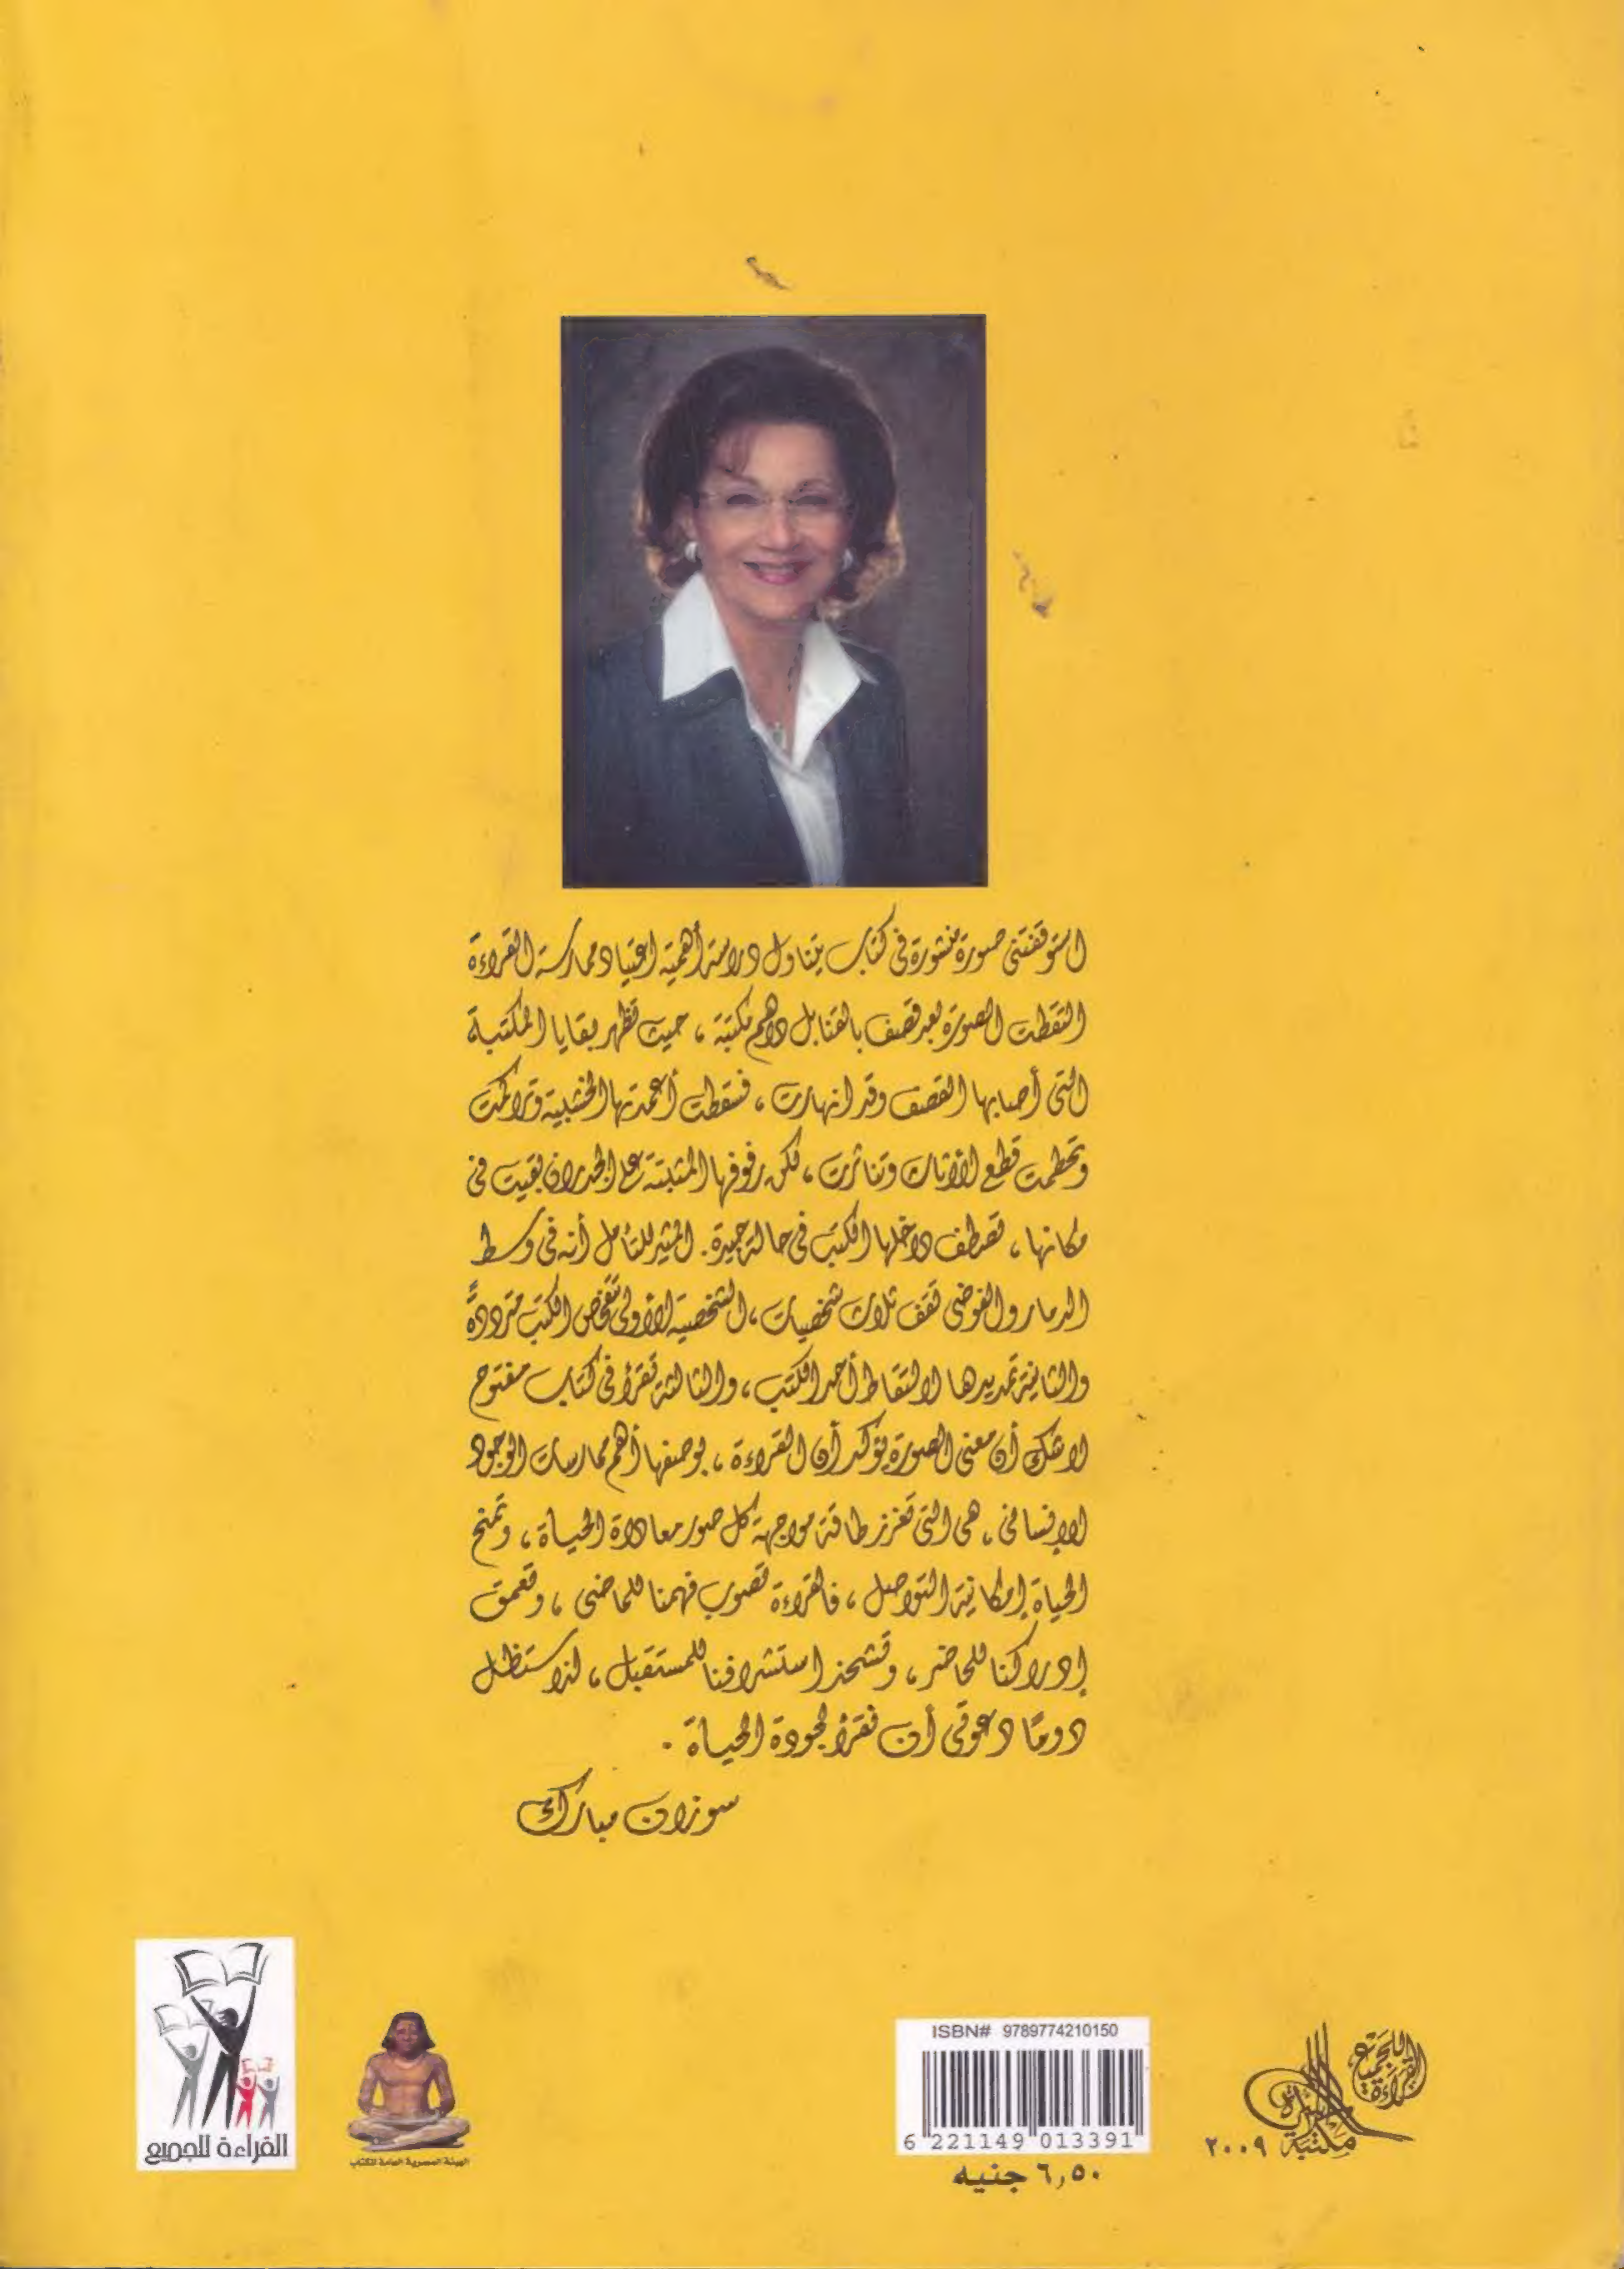 استوقفتنى صورة منشورة فى كتاب يتناول دراسة أهمية اعتياد ممارسة القراءة
التقطت الصورة بعد قصف بالقنابل داهم مكتبة ، حيث تظهر بقايا المكتبة
التى أصابها القصف وقد انهارت ، فسقطت أعمدتها الخشبية وتراكمت
وتحطمت قطع الأثاث وتناثرت ، لكن رفوفها المثبتة على الجدران بقيت فى
مكانها ، تصطف داخلها الكتب فى حالة جيدة . المثير للتأمل أنه فى وسط
الدمار والفوضى تقف ثلاث شخصيات ، الشخصية الأولى تتفحص الكتب مترددةً
والثانية تمد يدها لالتقاط أحد الكتب ، والثالثة تقرأ فى كتاب مفتوح
لا شك أن معنى الصورة يؤكد أن القراءة ، بوصفها أهم ممارسات الوجود
الإنسانى ، هى التى تعزز طاقة مواجهة كل صور معاداة الحياة ، وتمنح
الحياة إمكانية التواصل ، فالقراءة تصوب فهمنا للماضى ، وتعمق
إدراكنا للحاضر ، وتشحذ استشرافنا للمستقبل ، لذا ستظل
دومًا دعوتى أن نقرأ لجودة الحياة .
سوزان مبارك
القراءة للجميع
الهيئة المصرية العامة للكتاب
ISBN# 9789774210150
6 221149 013391
٦,٥٠ جنيه
القراءة للجميع
مكتبة الأسرة
٢٠٠٩